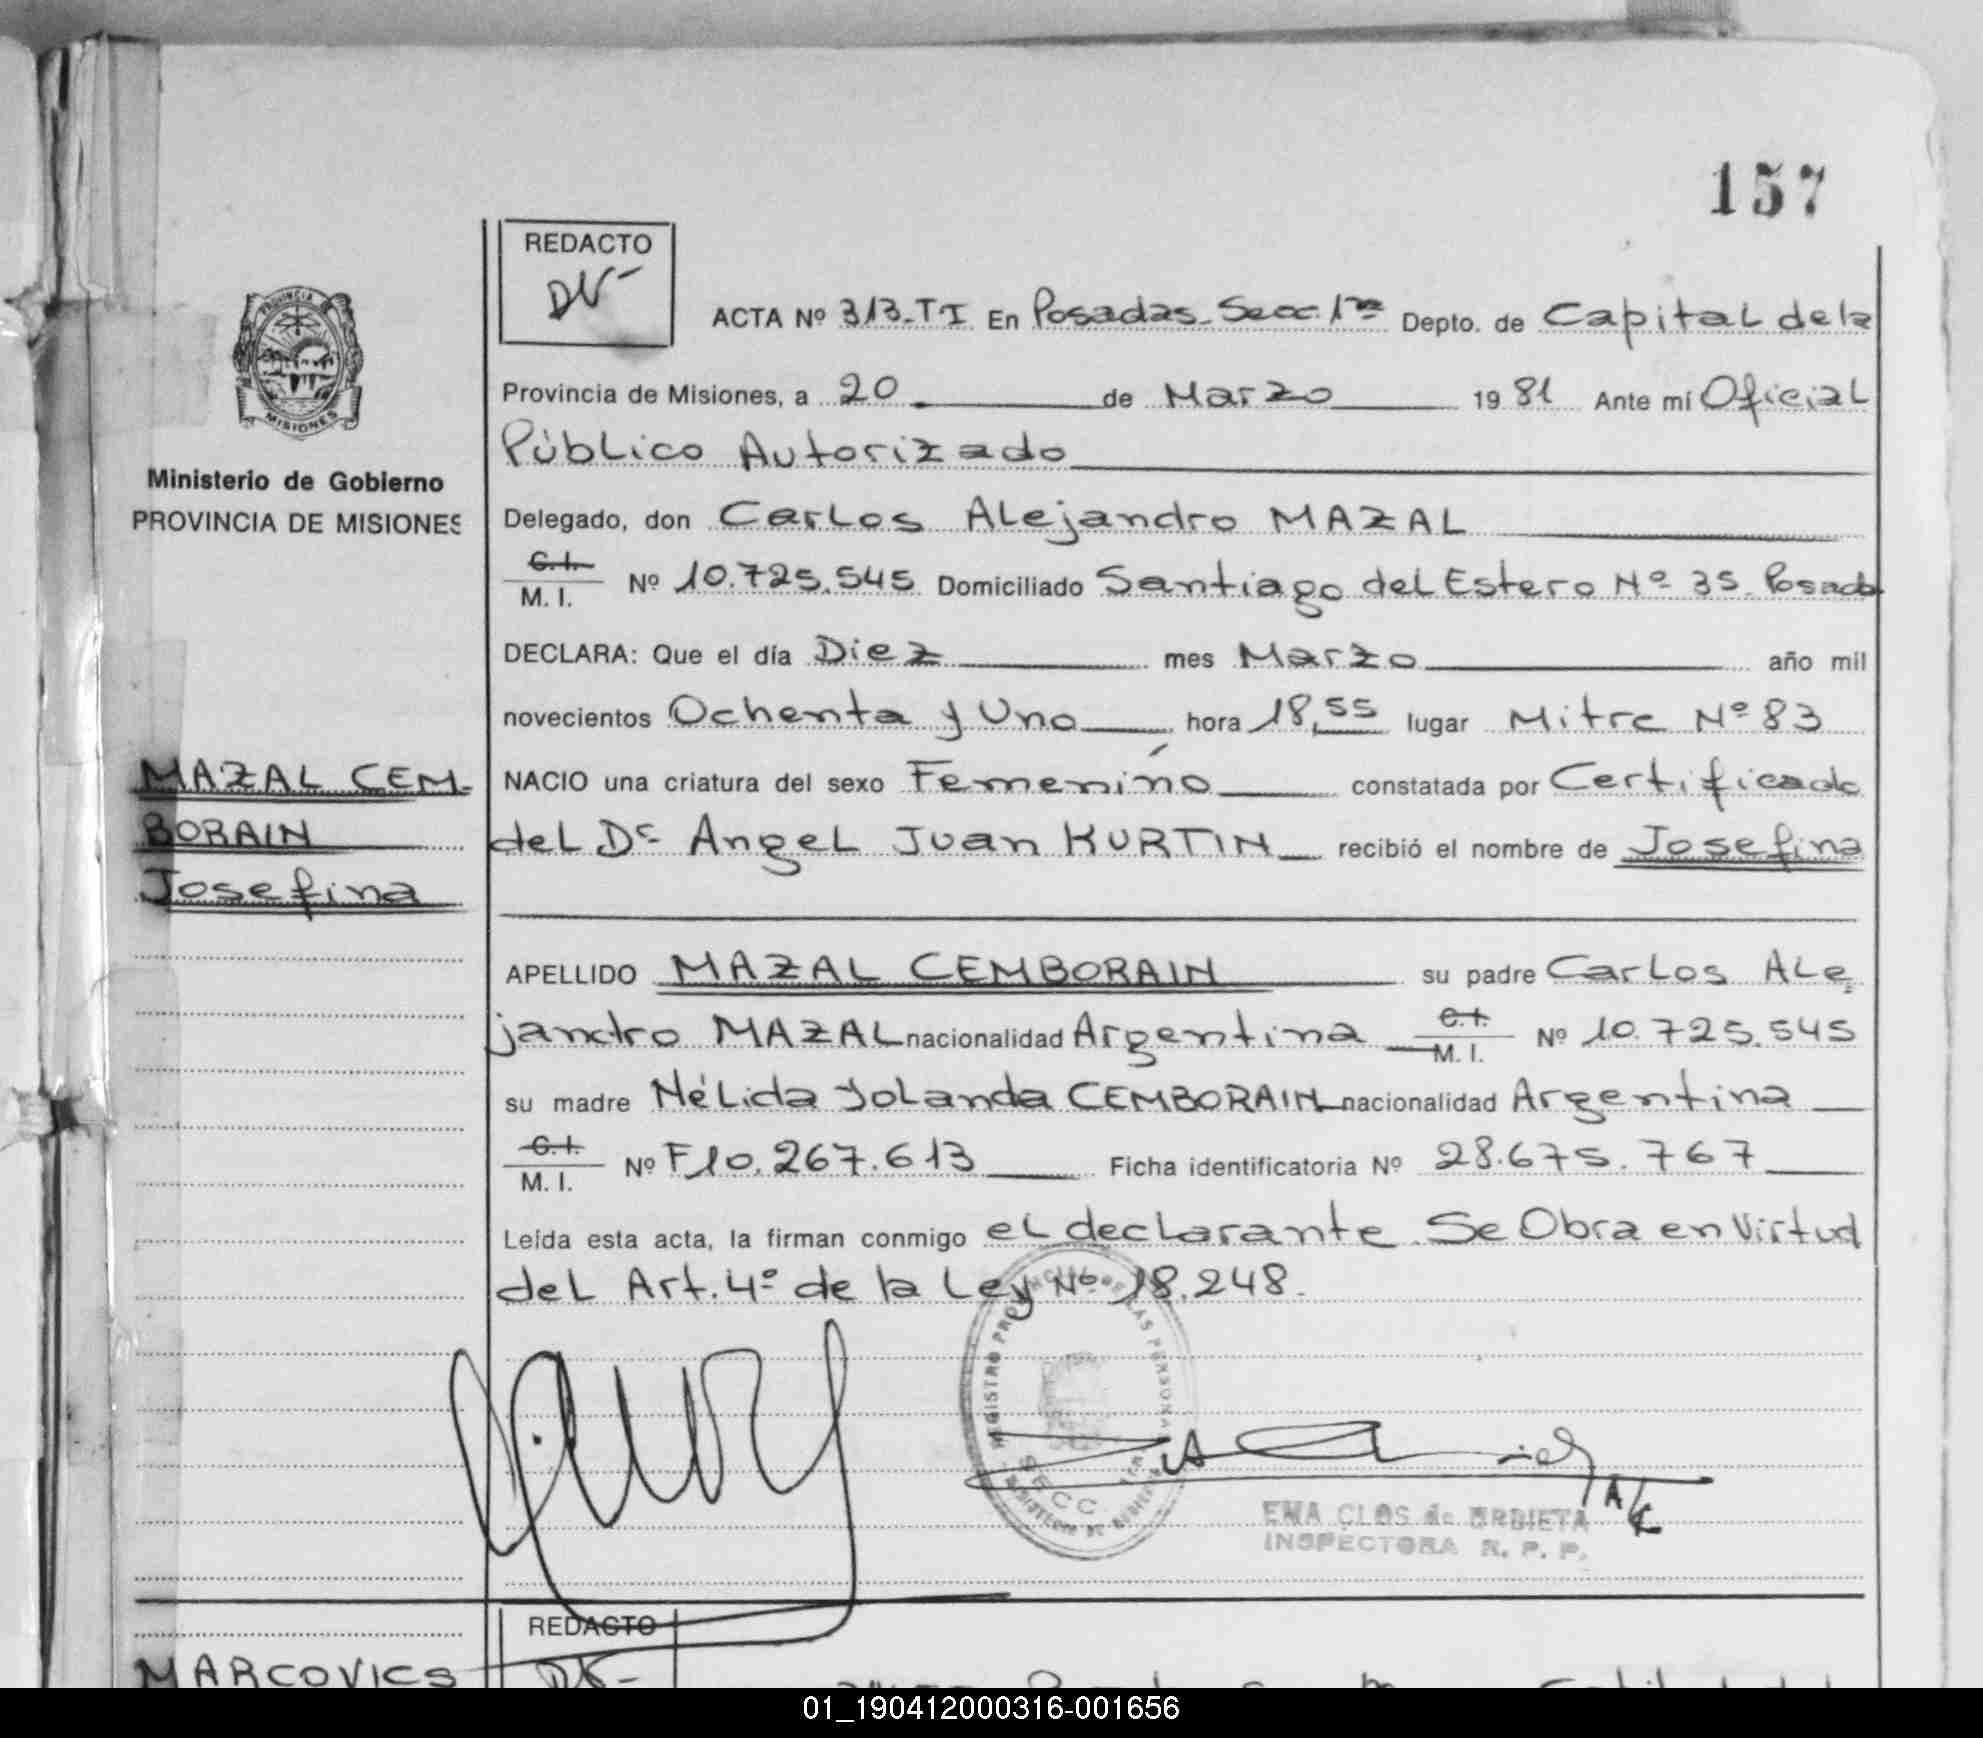 157
REDACTO
ACTA Nº 313-TI En Posadas-Secc. 1ra Depto. de Capital de la
Provincia de Misiones, a 20 de Marzo 1981 Ante mí Oficial
Público Autorizado
PROVINCIA DE
MISIONES
Ministerio de Gobierno
PROVINCIA DE MISIONES
Delegado, don Carlos Alejandro MAZAL
C.I.
M. I. Nº 10.725.545 Domiciliado Santiago del Estero Nº 35. Posadas
DECLARA: Que el día Diez mes Marzo año mil
novecientos Ochenta y Uno hora 18,55 lugar Mitre Nº 83
MAZAL CEM-
BORAIN
Josefina
NACIO una criatura del sexo Femenino constatada por Certificado
del Dr Angel Juan KURTIN recibió el nombre de Josefina
APELLIDO MAZAL CEMBORAIN su padre Carlos Ale
jandro MAZAL nacionalidad Argentina C.I. M. I. Nº 10.725.545
su madre Nélida Yolanda CEMBORAIN nacionalidad Argentina
C.I.
M. I. Nº F10.267.613 Ficha identificatoria Nº 28.675.767
Leída esta acta, la firman conmigo el declarante. Se Obra en Virtud
del Art. 4º de la Ley Nº 18.248.
REGISTRO PROVINCIAL DE LAS PERSONAS
SECC.
EMA CLOS de URBIETA
INSPECTORA R. P. P.
REDACTO
MARCOVICS
01_190412000316-001656